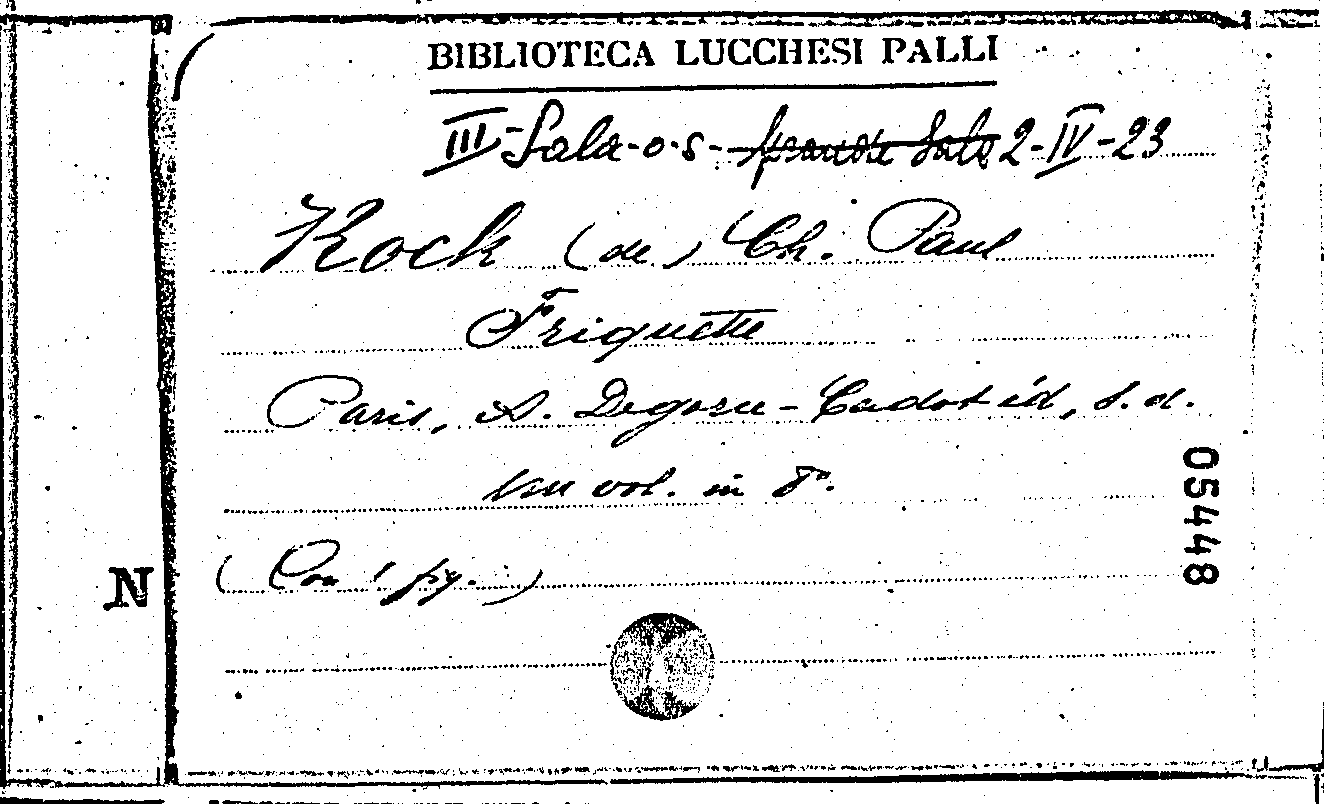 BIBLIOTECA LUCCHESI PALLI
III-Sala-o-s- Grande Sala 2-IV-23
Kock (de) Ch. Paul
Friquette
Paris, A. Degorce-Cadot éd, s.d.
un vol. in 8°.
(Con 1 fig.)
05448
N